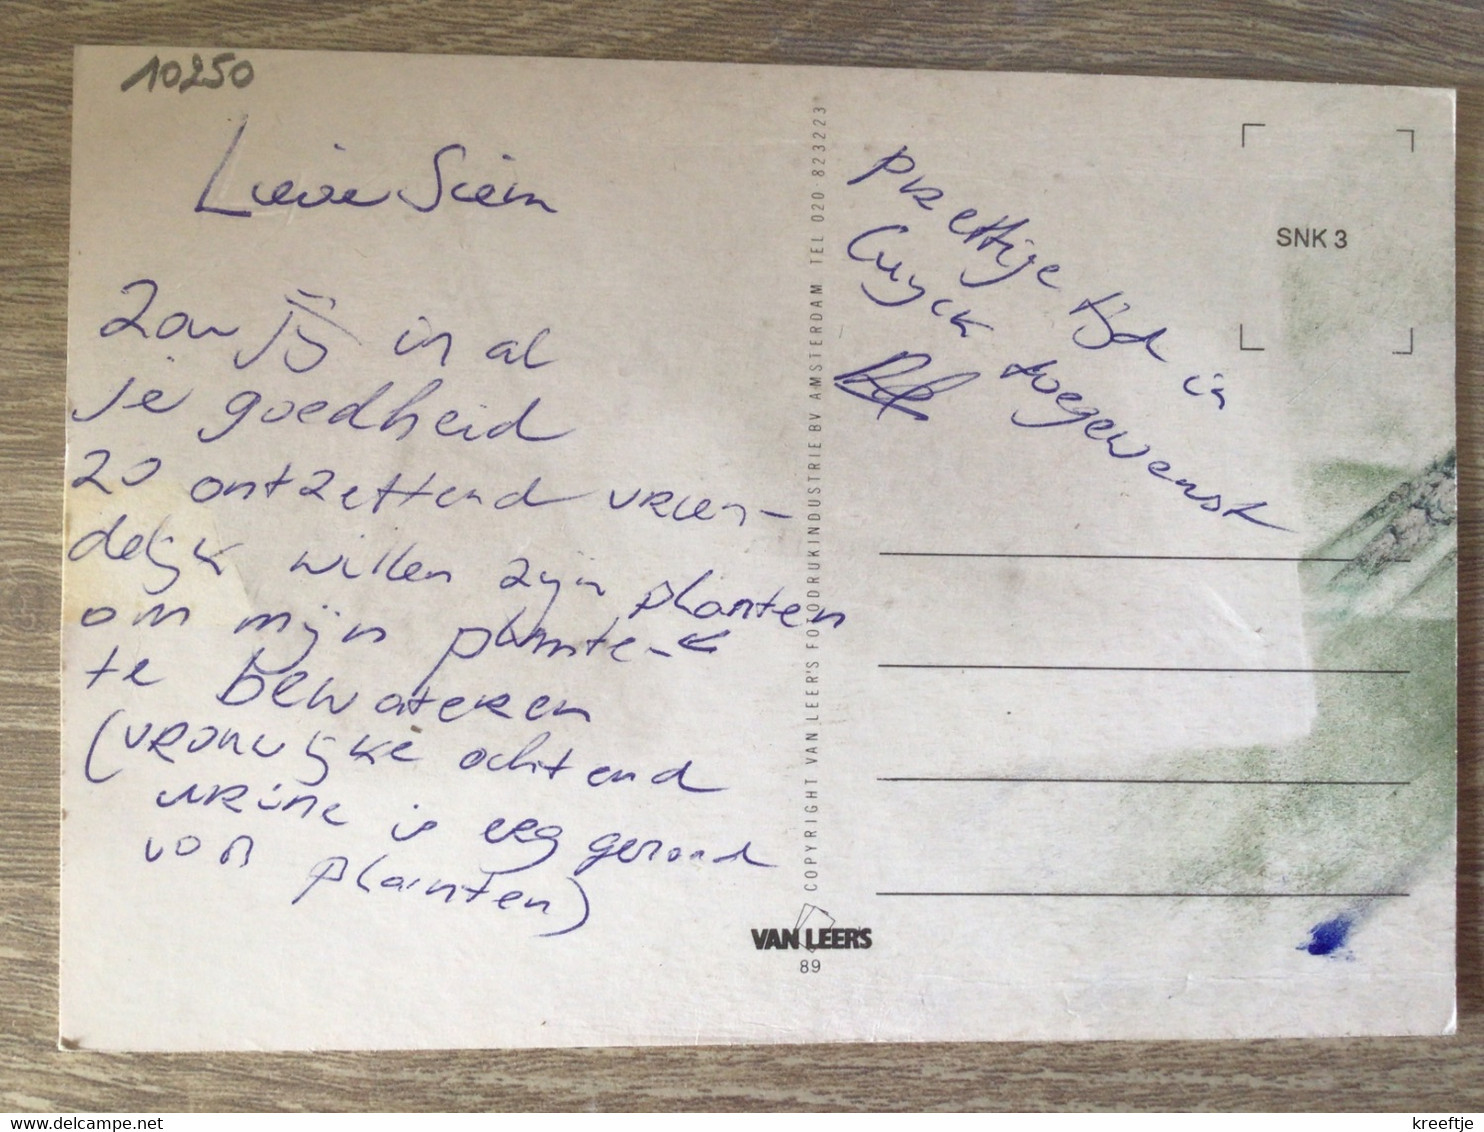 10250
Lieve Siem
Zou jij in al
je goedheid
zo ontzettend vrien-
delijk willen zijn planten
om mijn plante-
te bewateren
(vrouwlijke ochtend
urine is erg gezond
von plainten)
prettige tijd in
Cuyck toegewenst
SNK 3
COPYRIGHT VAN LEER'S FOTODRUKINDUSTRIE BV AMSTERDAM TEL 020 823223*
VAN LEER'S
89
kreeftje